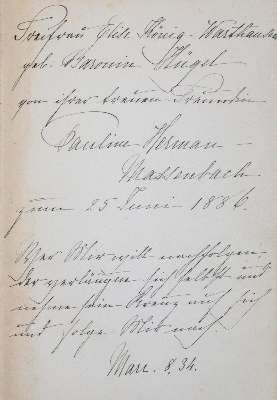 Freifrau Elise König-Warthausen
geb. Baronin Hügel
von ihrer treuen Freundin
Pauline Herman
Massenbach
zum 25 Juni 1886.
Wer Mir will nachfolgen,
der verläugne sich selbst und
nehme sein Kreuz auf sich
und folge Mir nach.
Marc. 8,34.